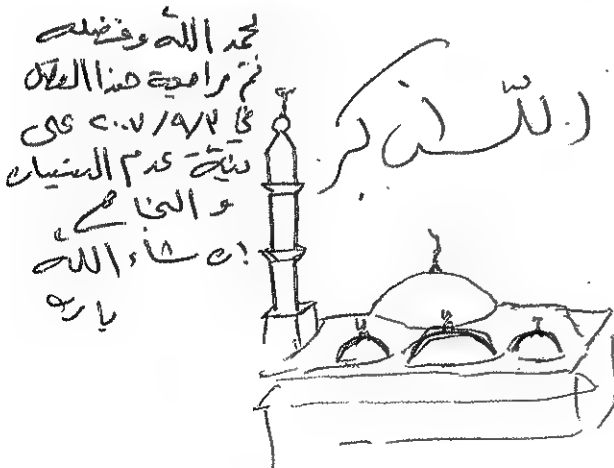 لحمد الله وفضله
تم مراجعة هذا
في ٢٠٠٧/٩/٣ على
نية عدم النسيان
و النجاح
إن شاء الله
يا رب
الله أكبر